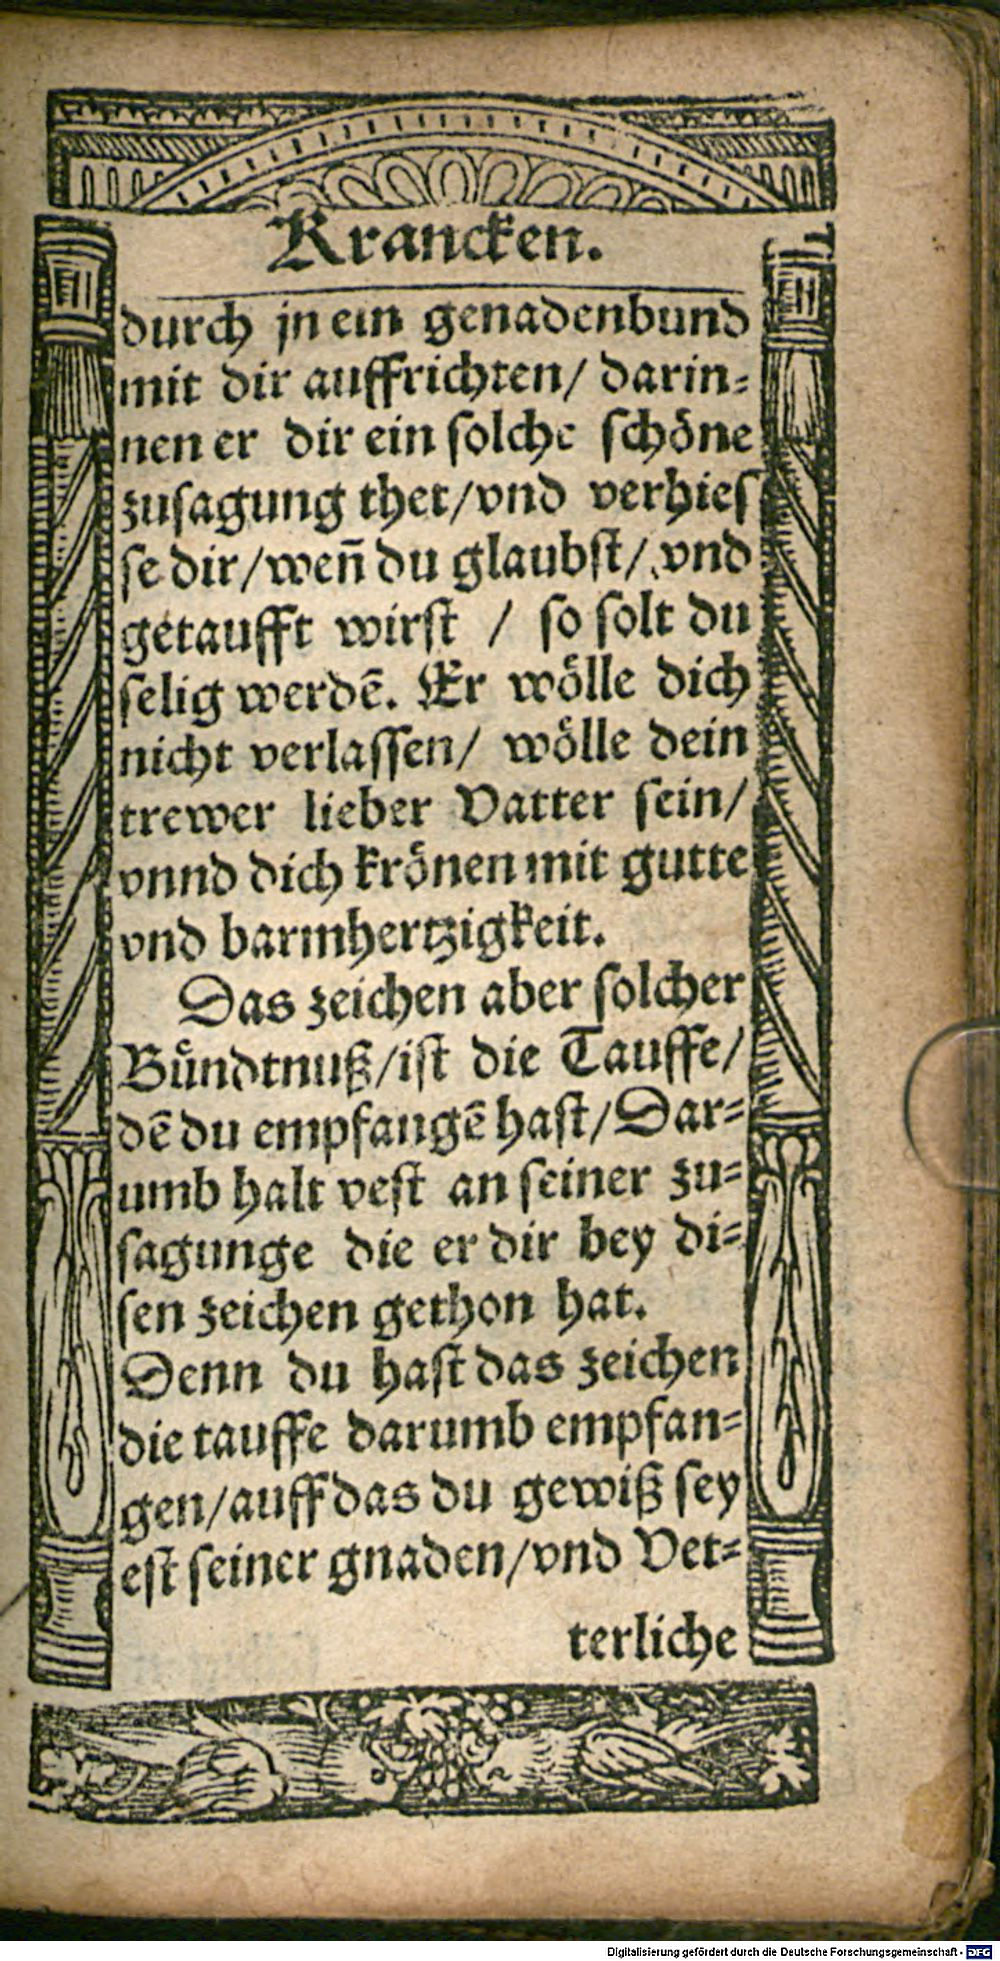 Krancken.
durch jn ein genadenbund
mit dir auffrichten/ darin⸗
nen er dir ein solche schöne
zusagung thet/vnd verhies
se dir/wen̄ du glaubst/ vnd
getaufft wirst / so solt du
selig werdē. Er wölle dich
nicht verlassen/ wölle dein
trewer lieber Vatter sein/
vnnd dich krönen mit gutte
vnd barmhertzigkeit.
Das zeichen aber solcher
Bündtnuß/ist die Tauffe/
dē du empfangē hast/Dar⸗
umb halt vest an seiner zu⸗
sagunge die er dir bey di⸗
sen zeichen gethon hat.
Denn du hast das zeichen
die tauffe darumb empfan⸗
gen/auff das du gewiß sey
est seiner gnaden/vnd Vet⸗
terliche
Digitalisierung gefördert durch die Deutsche Forschungsgemeinschaft - DFG